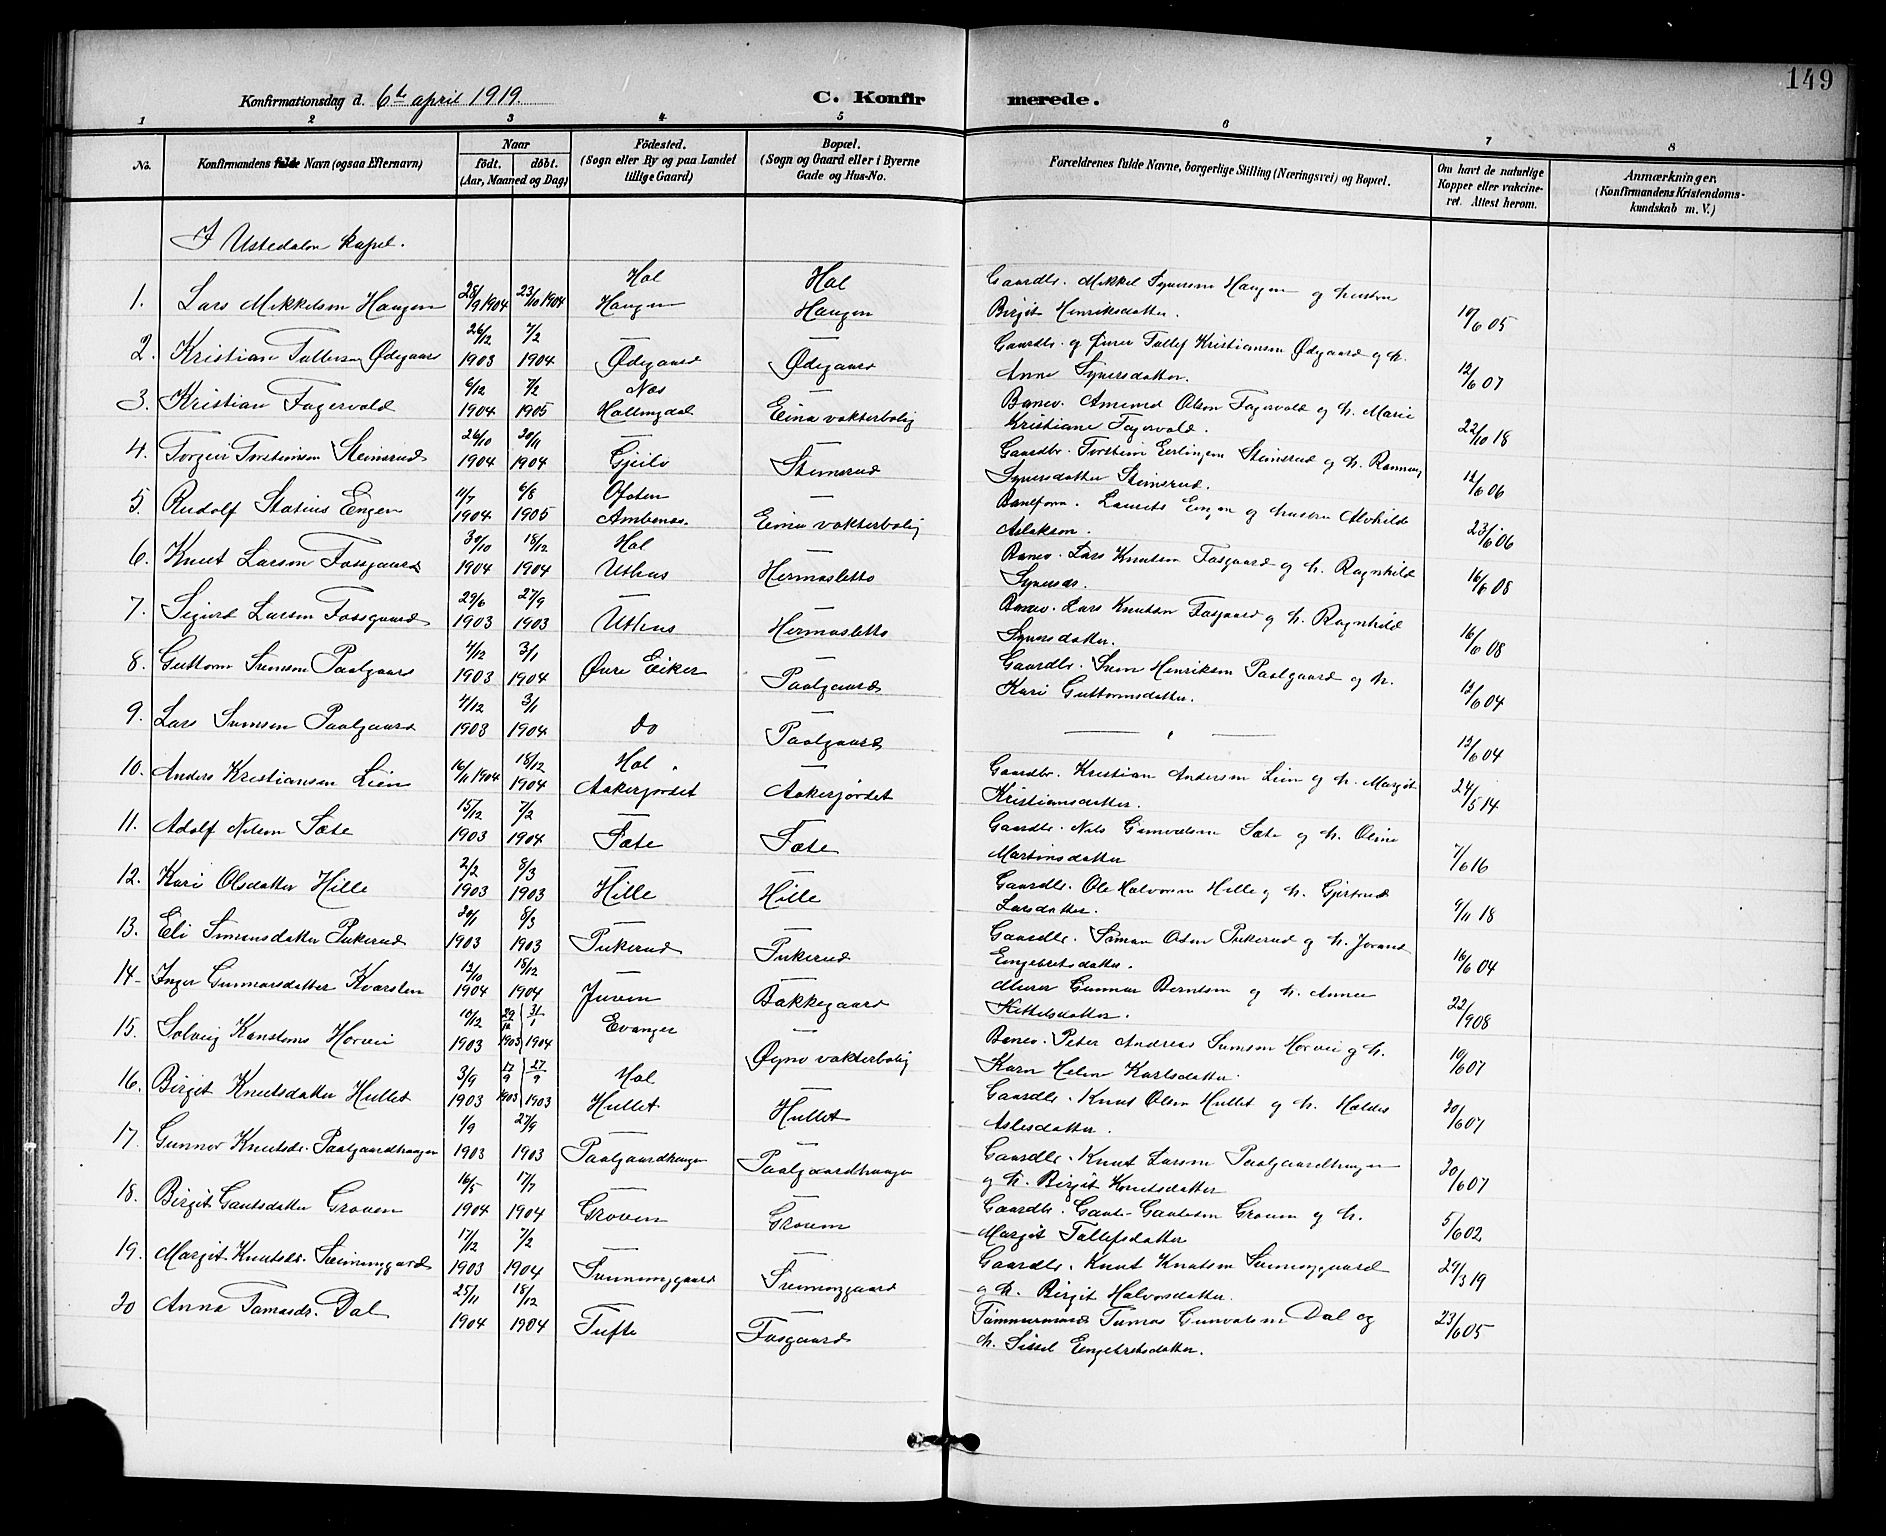 149
Konfirmationsdag d. 6te april 1919. C. Konfirmerede.
1 2 3 4 5 6 7 8
No. Konfirmandens fulde Navn (ogsaa Efternavn) Naar födt. döbt. (Aar, Maaned og Dag) Födested. (Sogn eller By og paa Landet tillige Gaard) Bopæl. (Sogn og Gaard eller i Byerne Gade og Hus-No. Forældrenes fulde Navne, borgerlige Stilling (Næringsvei) og Bopæl. Om havt de naturlige Kopper eller vakcineret. Attest herom. Anmærkninger, (Konfirmandens Kristendomskundskab m. V.)
I Ustedalen kapel.
1. Lars Mikkelsen Haugen 28/9 1904 23/10 1904 Hol Haugen Hol Haugen Gaardbr. Mikkel Syversen Haugen og hustru
Birgit Henriksdatter. 10/6 05
2. Kristian Tollefsen Ødegaard 26/12 1903 7/2 1904 — Ødegaard — Ødegaard Gaardbr. og Tollef Kristiansen Ødegaard og h.
Anne Syversdatter. 12/6 07
3. Kristian Fagervold 6/12 1904 7/2 1905 Næs Hallingdal — Eina vokterbolig Banev. Amund Olsen Fagervold og h. Marie
Kristiane Fagervold. 22/10 18
4. Torgeir Torsteinsen Steinsrud 26/10 1904 20/11 1904 — Gjeilo — Steinsrud Gaardbr. Torstein Erlingsen Steinsrud og h. Rannveig
Syversdatter Steinsrud. 12/6 06
5. Rudolf Statius Engen 11/7 1904 6/8 1905 Ofoten Ankenæs. — Eina vokterbolig Baneform. Laurits Engen og hustru Alvhilde
Aslaksen. 23/6 06
6. Knut Larsen Fosgaard 30/10 1904 18/12 1904 Hol Uthus — Hermosletto Banev. Lars Knutsen Fosgaard og h. Ragnhild
Syversdr. 16/6 08
7. Sigurd Larsen Fosgaard 29/6 1903 27/9 1903 — Uthus — Hermosletto Banev. Lars Knutsen Fosgaard og h. Ragnhild
Syversdatter. 16/6 08
8. Guttorm Svensen Paalgaard 4/12 1903 3/1 1904 Øvre Eiker — Paalgaard Gaardbr. Sven Henriksen Paalgaard og h.
Kari Guttormsdatter. 13/6 04
9. Lars Svensen Paalgaard 4/12 1903 3/1 1904 do — Paalgaard — " — 13/6 04
10. Anders Kristiansen Lien 16/11 1904 18/12 1904 Hol Aakerjordet — Aakerjordet Gaardbr. Kristian Andersen Lien og h. Margit
Kristiansdatter. 24/5 14
11. Adolf Nilsen Sæte 15/12 1903 7/2 1904 — Sæte — Sæte Gaardbr. Nils Gunvaldsen Sæte og h. Oline
Martinsdatter 7/6 16
12. Kari Olsdatter Hille 2/2 1903 8/3 1903 — Hille — Hille Gaardbr. Ole Halvorsen Hille og h. Gjertrud
Larsdatter. 9/11 18
13. Eli Simensdatter Pukerud 20/1 1903 8/3 1903 — Pukerud — Pukerud Gaardbr. Simen Olsen Pukerud og h. Jorand
Engebretsdatter. 16/6 04
14. Inger Gunnarsdatter Kvarsten 12/10 1904 18/12 1904 — Juven — Bakkegaard Murer Gunnar Berntsen og h. Anne
Kittelsdatter. 22/9 08
15. Solveig Konstanse Horvei 10/12 1903 29/12 1903 31/1 1904 Evanger — Øyno vokterbolig Banev. Peter Andreas Svensen Horvei og h.
Karn Helen Karlsdatter. 19/6 07
16. Birgit Knutsdatter Hullet 3/9 1903 17/9 1903 27/9 1903 Hol Hullet — Hullet Gaardbr. Knut Olsen Hullet og h. Haldis
Aslesdatter. 20/6 07
17. Gunnor Knutsdr. Paalgaardhaugen 1/9 1903 27/9 1903 — Paalgaardhaugen — Paalgaardhaugen Gaardbr. Knut Larsen Paalgaardhaugen
og h. Birgit Knutsdatter 20/6 07
18. Birgit Gautsdatter Groven 16/5 1904 17/7 1904 — Groven — Groven Gaardbr. Gaute Gautesen Groven og h.
Margit Tollefsdatter 5/6 02
19. Margit Knutsdr. Sveinunggard 17/12 1903 7/2 1904 — Sveinunggaard — Sveinunggaard Gaardbr. Knut Knutsen Sveinunggaard
og h. Birgit Halvorsdatter. 29/3 19
20 Anna Tomasdr. Dal 25/11 1904 18/12 1904 — Tufte — Fosgaard Tømmermand Tomas Gunvalsen Dal og
h. Sissel Engebretsdatter. 23/6 05